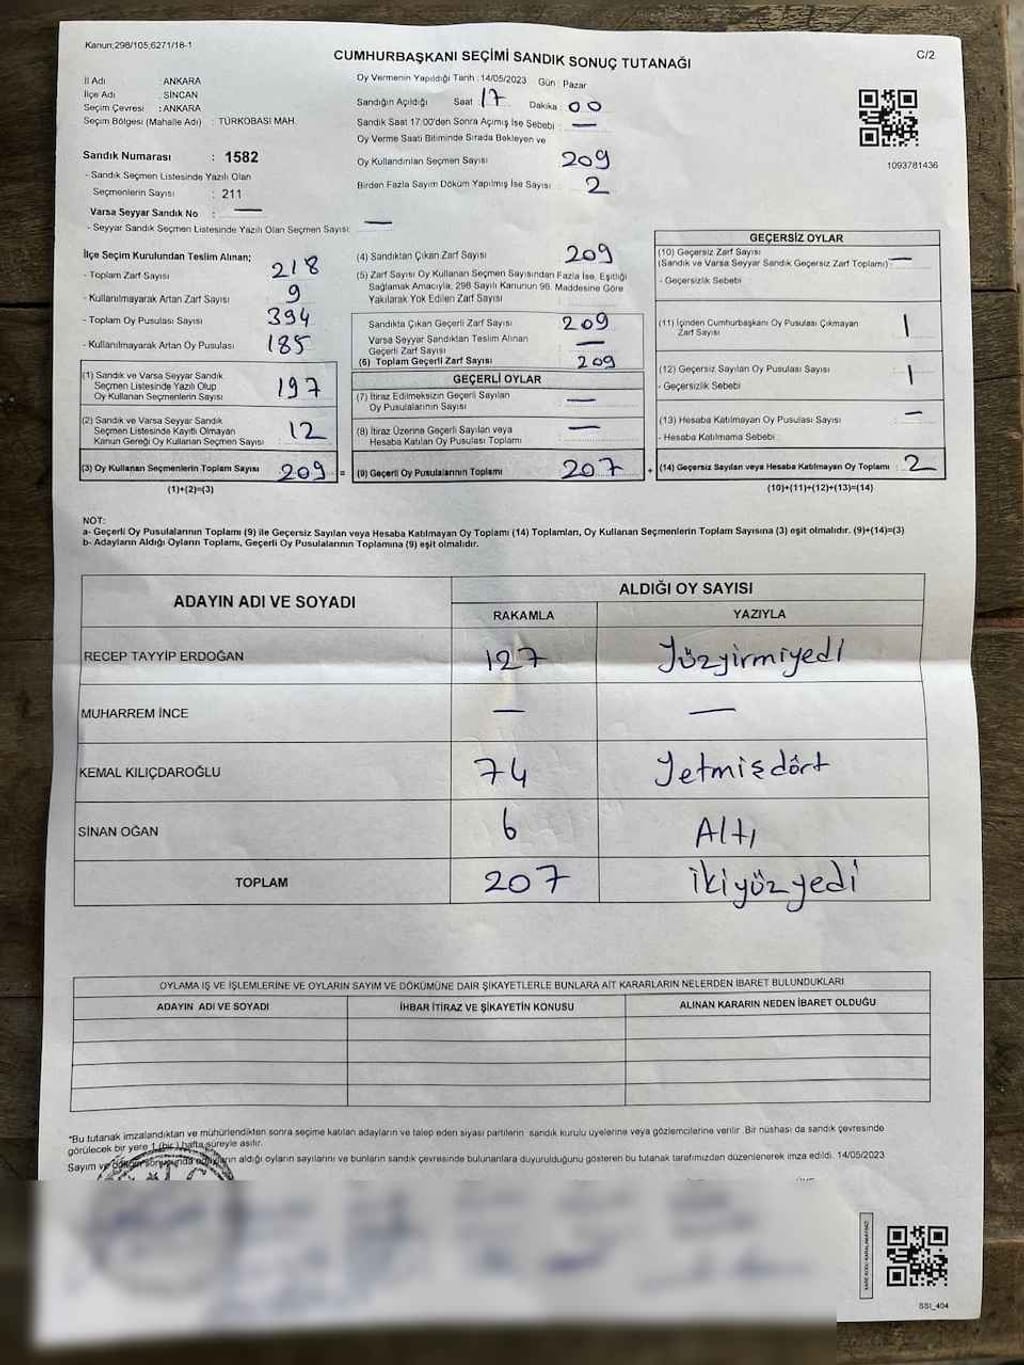 Kanun;298/105;6271/18-1
CUMHURBAŞKANI SEÇİMİ SANDIK SONUÇ TUTANAĞI
C/2
İl Adı : ANKARA
İlçe Adı : SİNCAN
Seçim Çevresi : ANKARA
Seçim Bölgesi (Mahalle Adı) : TÜRKOBASI MAH.
Sandık Numarası : 1582
- Sandık Seçmen Listesinde Yazılı Olan
Seçmenlerin Sayısı : 211
Varsa Seyyar Sandık No : —
- Seyyar Sandık Seçmen Listesinde Yazılı Olan Seçmen Sayısı: —
Oy Vermenin Yapıldığı Tarih : 14/05/2023 Gün Pazar
Sandığın Açıldığı Saat 17 Dakika 00
Sandık Saat 17:00'den Sonra Açımış İse Sebebi : —
Oy Verme Saati Bitiminde Sırada Bekleyen ve
Oy Kullandırılan Seçmen Sayısı 209
Birden Fazla Sayım Döküm Yapılmış İse Sayısı 2
1093781436
İlçe Seçim Kurulundan Teslim Alınan;
- Toplam Zarf Sayısı : 218
- Kullanılmayarak Artan Zarf Sayısı : 9
- Toplam Oy Pusulası Sayısı : 394
- Kullanılmayarak Artan Oy Pusulası : 185
(1) Sandık ve Varsa Seyyar Sandık
Seçmen Listesinde Yazılı Olup
Oy Kullanan Seçmenlerin Sayısı : 197
(2) Sandık ve Varsa Seyyar Sandık
Seçmen Listesinde Kayıtlı Olmayan
Kanun Gereği Oy Kullanan Seçmen Sayısı : 12
(3) Oy Kullanan Seçmenlerin Toplam Sayısı : 209 =
(1)+(2)=(3)
(4) Sandıktan Çıkan Zarf Sayısı : 209
(5) Zarf Sayısı Oy Kullanan Seçmen Sayısından Fazla İse, Eşitliği
Sağlamak Amacıyla, 298 Sayılı Kanunun 98. Maddesine Göre
Yakılarak Yok Edilen Zarf Sayısı
Sandıkta Çıkan Geçerli Zarf Sayısı : 209
Varsa Seyyar Sandıktan Teslim Alınan
Geçerli Zarf Sayısı : —
(6) Toplam Geçerli Zarf Sayısı : 209
GEÇERLİ OYLAR
(7) İtiraz Edilmeksizin Geçerli Sayılan
Oy Pusulalarının Sayısı : —
(8) İtiraz Üzerine Geçerli Sayılan veya
Hesaba Katılan Oy Pusulası Toplamı : —
(9) Geçerli Oy Pusulalarının Toplamı : 207 +
GEÇERSİZ OYLAR
(10) Geçersiz Zarf Sayısı
(Sandık ve Varsa Seyyar Sandık Geçersiz Zarf Toplamı) : —
- Geçersizlik Sebebi :
(11) İçinden Cumhurbaşkanı Oy Pusulası Çıkmayan
Zarf Sayısı : 1
(12) Geçersiz Sayılan Oy Pusulası Sayısı : 1
- Geçersizlik Sebebi :
(13) Hesaba Katılmayan Oy Pusulası Sayısı : —
- Hesaba Katılmama Sebebi :
(14) Geçersiz Sayılan veya Hesaba Katılmayan Oy Toplamı : 2
(10)+(11)+(12)+(13)=(14)
NOT:
a- Geçerli Oy Pusulalarının Toplamı (9) ile Geçersiz Sayılan veya Hesaba Katılmayan Oy Toplamı (14) Toplamları, Oy Kullanan Seçmenlerin Toplam Sayısına (3) eşit olmalıdır. (9)+(14)=(3)
b- Adayların Aldığı Oyların Toplamı, Geçerli Oy Pusulalarının Toplamına (9) eşit olmalıdır.
ADAYIN ADI VE SOYADI
ALDIĞI OY SAYISI
RAKAMLA YAZIYLA
RECEP TAYYİP ERDOĞAN 127 Yüzyirmiyedi
MUHARREM İNCE — —
KEMAL KILIÇDAROĞLU 74 Yetmişdört
SİNAN OĞAN 6 Altı
TOPLAM 207 ikiyüzyedi
OYLAMA İŞ VE İŞLEMLERİNE VE OYLARIN SAYIM VE DÖKÜMÜNE DAİR ŞİKAYETLERLE BUNLARA AİT KARARLARIN NELERDEN İBARET BULUNDUKLARI
ADAYIN ADI VE SOYADI İHBAR İTİRAZ VE ŞİKAYETİN KONUSU ALINAN KARARIN NEDEN İBARET OLDUĞU
*Bu tutanak imzalandıktan ve mühürlendikten sonra seçime katılan adayların ve talep eden siyasi partilerin sandık kurulu üyelerine veya gözlemcilerine verilir. Bir nüshası da sandık çevresinde
görülecek bir yere 1 (bir) hafta süreyle asılır.
Sayım ve döküm sonucunda adayların aldığı oyların sayılarını ve bunların sandık çevresinde bulunanlara duyurulduğunu gösteren bu tutanak tarafımızdan düzenlenerek imza edildi. 14/05/2023
SSI_404